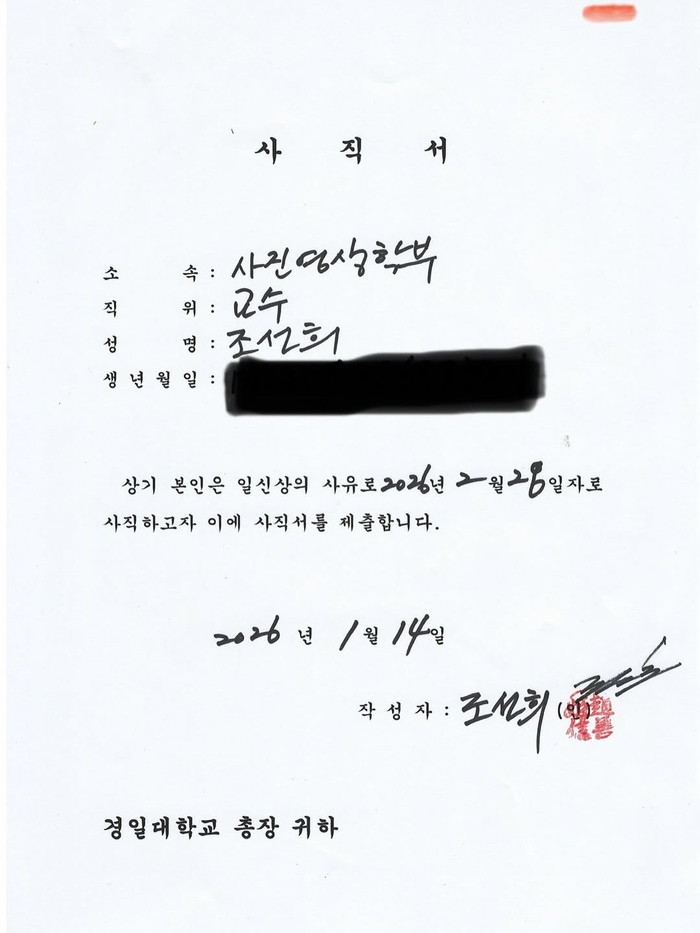 사 직 서
소 속 : 사진영상학부
직 위 : 교수
성 명 : 조선희
생년월일 :
상기 본인은 일신상의 사유로 2026년 2월 28일자로
사직하고자 이에 사직서를 제출합니다.
2026 년 1 월 14일
작 성 자 : 조선희 (인)
경일대학교 총장 귀하